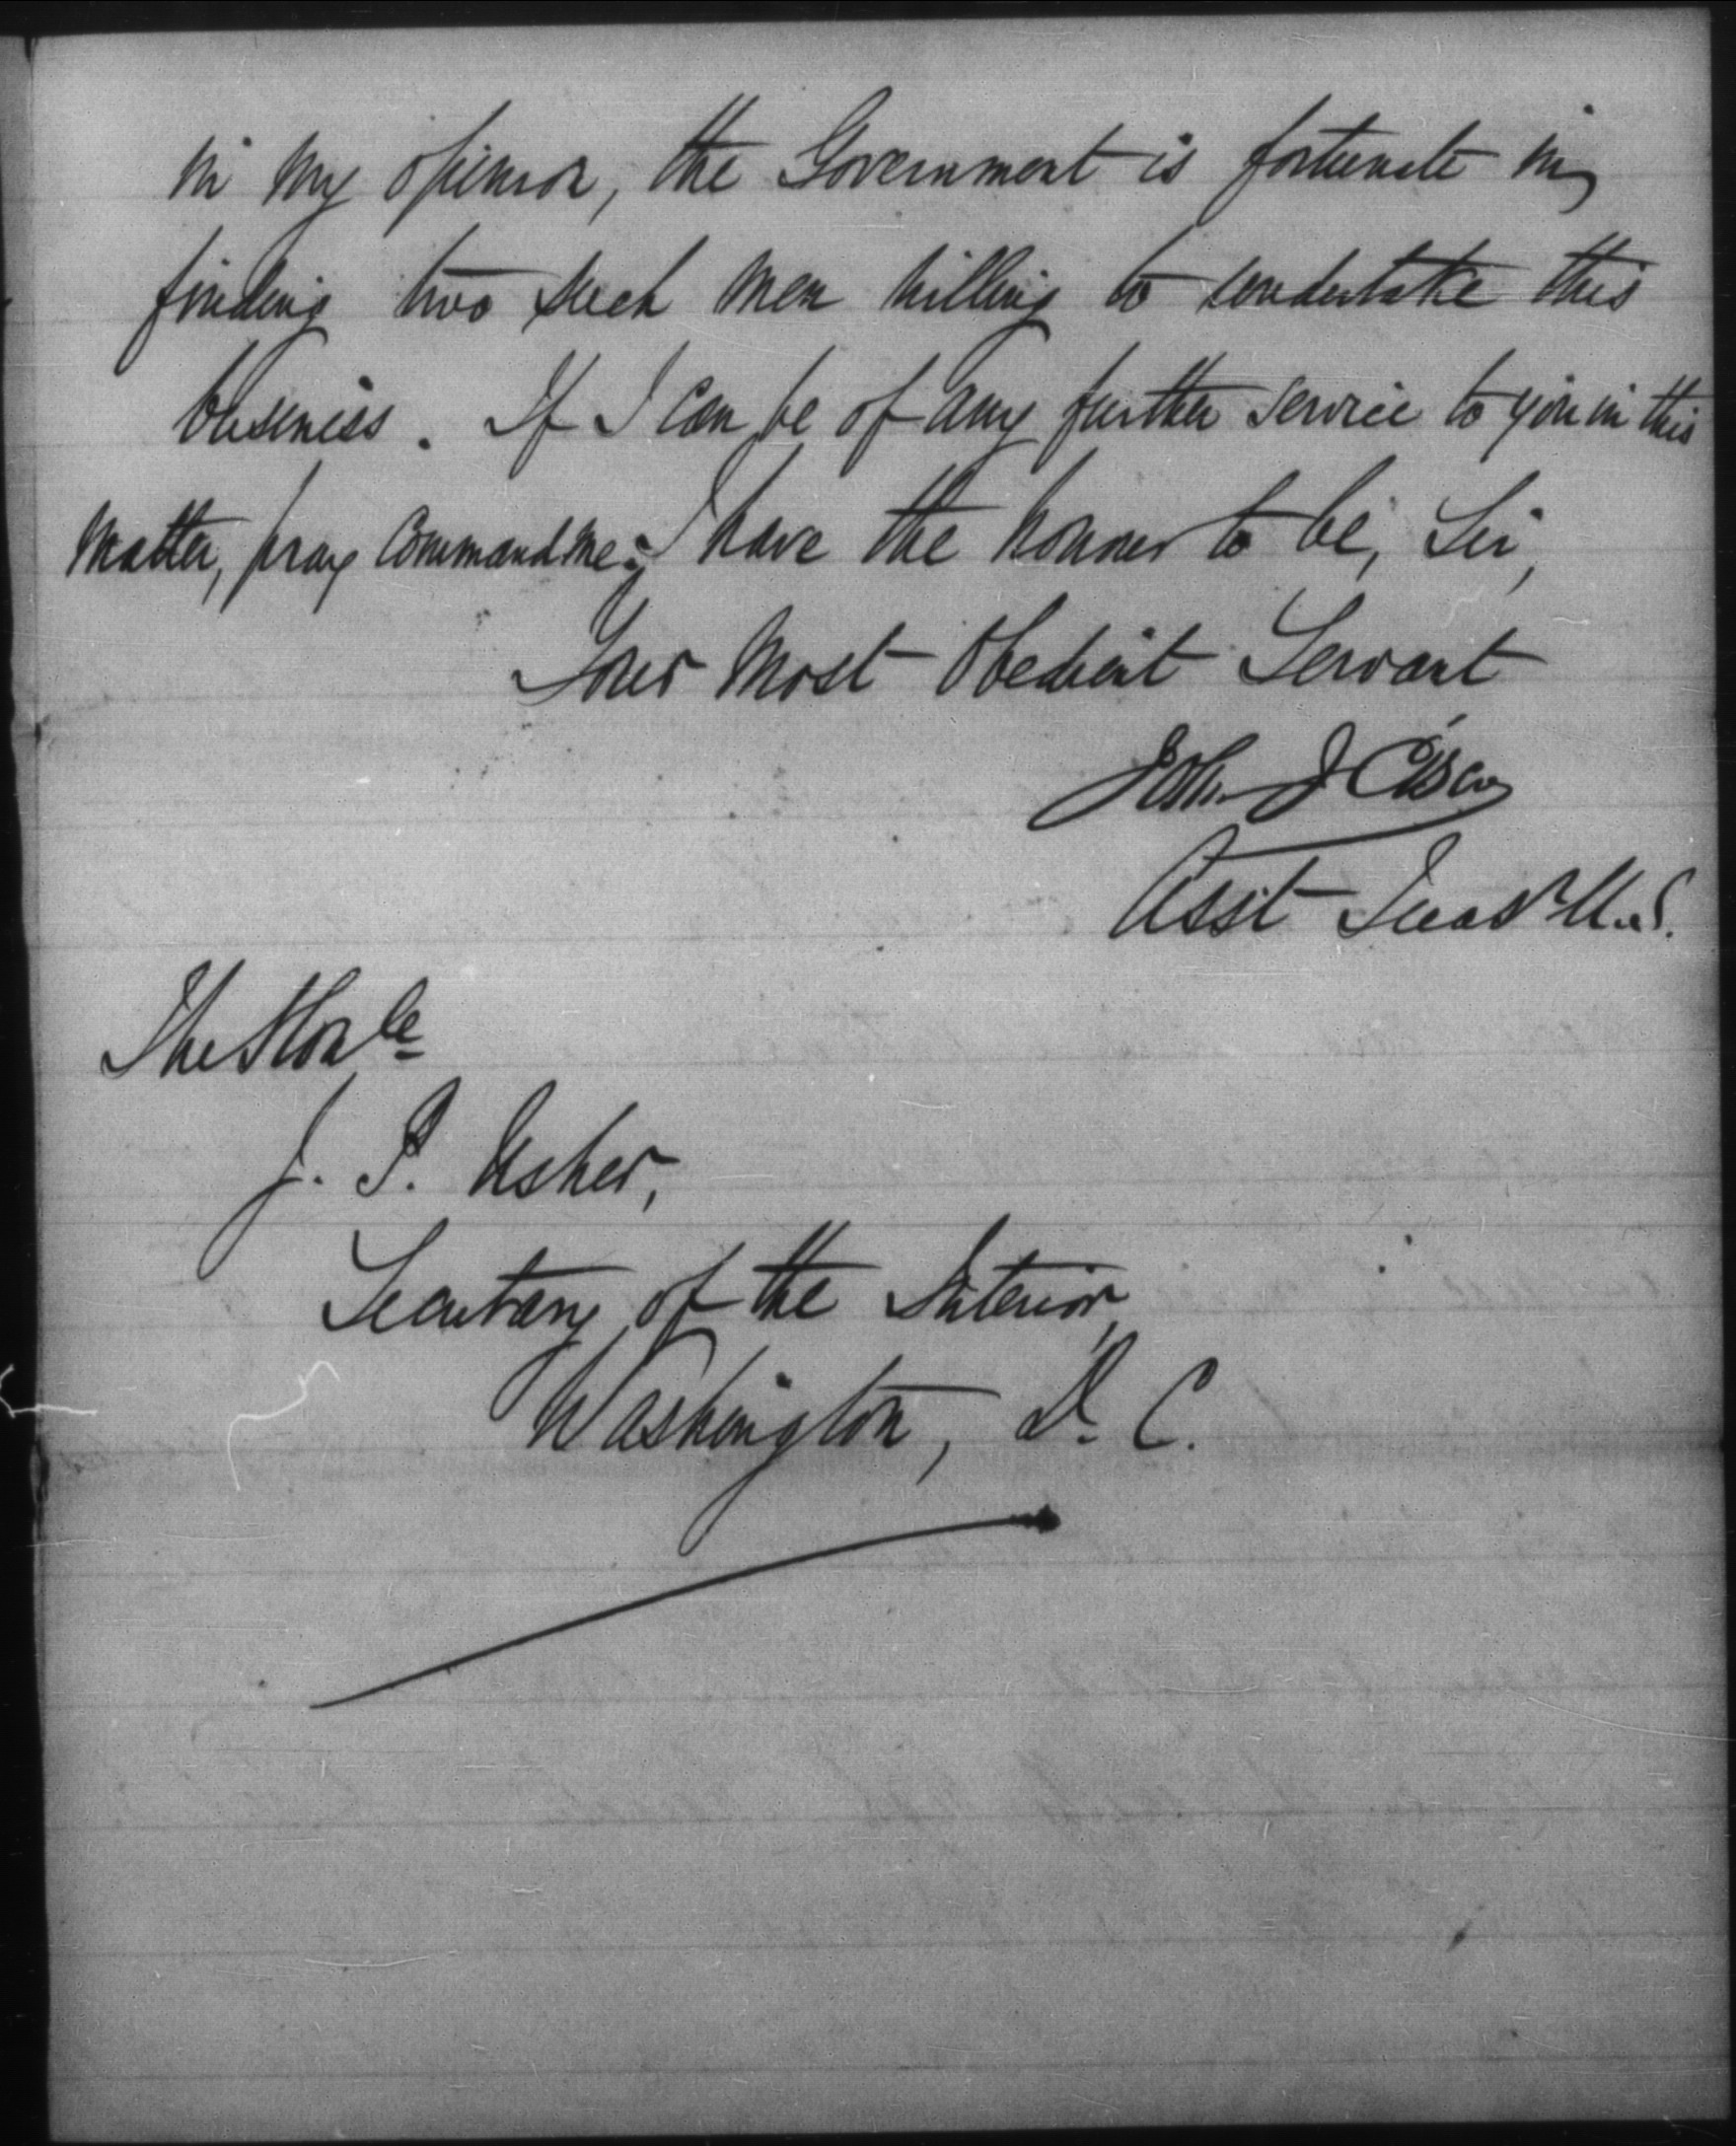 in my opinion, the Government is fortunate in
finding two such men willing to undertake this
business. If I can be of any further service to you in this
matter, pray command me. I have the honor to be, Sir,
Your most Obedient Servant
John J Cisco
Asst Treasr U.S.
The Honble
J. P. Usher,
Secretary of the Interior,
Washington, D. C.